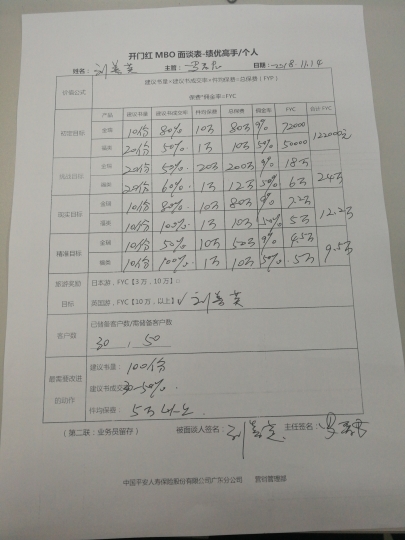 开门红 MBO 面谈表-绩优高手/个人
姓名： 刘善英 主管： 日期：2018.11.14
计算公式 建议书量*建议书成交率*件均保费=总保费（FYP）
保费*佣金率=FYC
产品 建议书量 建议书成交率 件均保费 总保费 佣金率 FYC 合计 FYC
锁定目标 金瑞 10份 80% 10万 80万 9% 72000 122000元
福 20份 50% 1万 10万 50% 50000
挑战目标 金瑞 20份 50% 20万 200万 9% 18万 24万
20份 60% 1万 12万 50% 6万
金瑞 10份 80% 10万 80万 9% 7.2万 12.2万
福 10份 100% 1万 10万 50% 5万
精准目标 金瑞 10份 50% 10万 50万 9% 4.5万 9.5万
10份 100% 1万 10万 50% 5万
旅游奖励 日本游，FYC【3 万，10 万】□
目标 英国游，FYC【10 万，以上】√ 刘善英
客户数 已储备客户数/需储备客户数
30 , 50
最需要改进 建议书量：100份
的动作 建议书成交 50%.
件均保费： 5万以上.
（第二联：业务员留存） 被面谈人签名： 刘善英. 主任签名：
中国平安人寿保险股份有限公司广东分公司 营销管理部